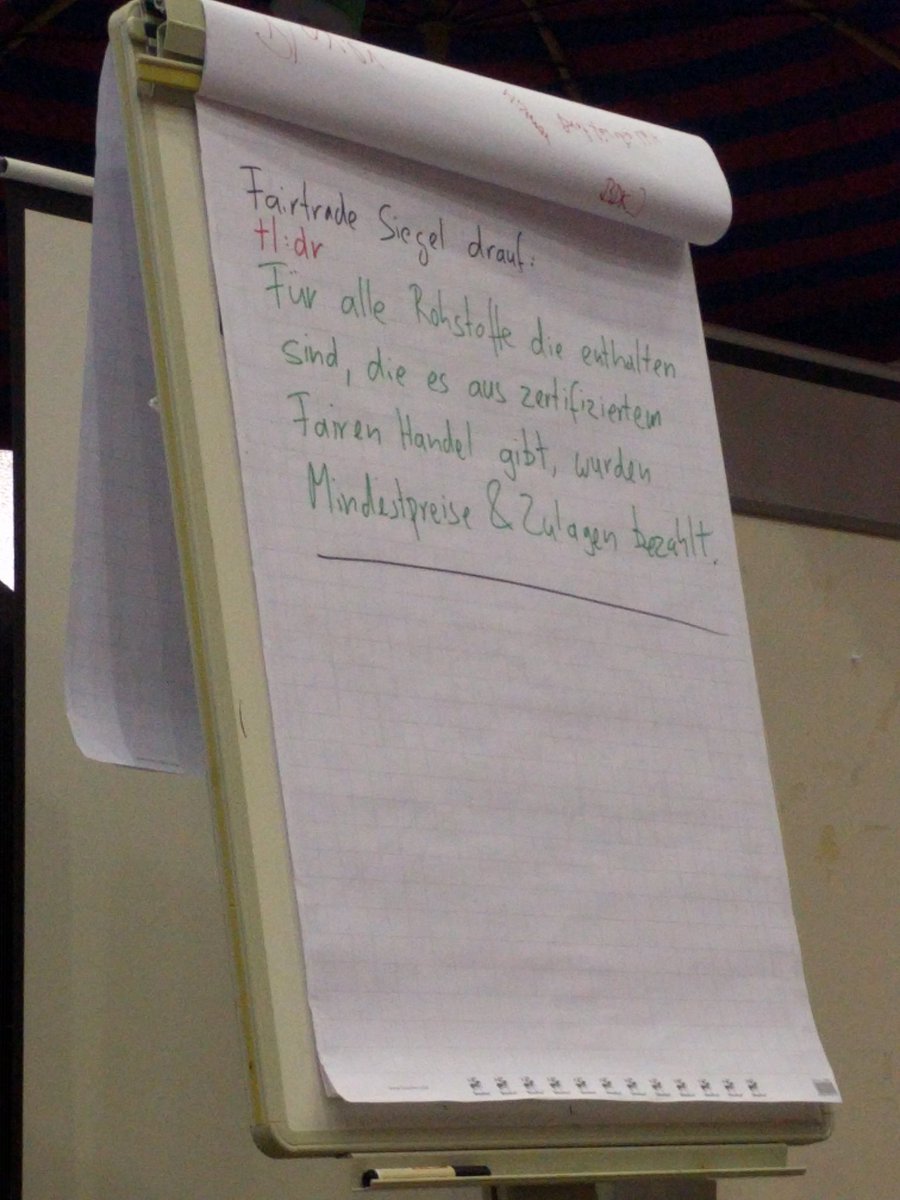 Fairtrade Siegel drauf:
tl:dr
Für alle Rohstoffe die enthalten
sind, die es aus zertifiziertem
Fairen Handel gibt, wurden
Mindestpreise & Zulagen bezahlt.